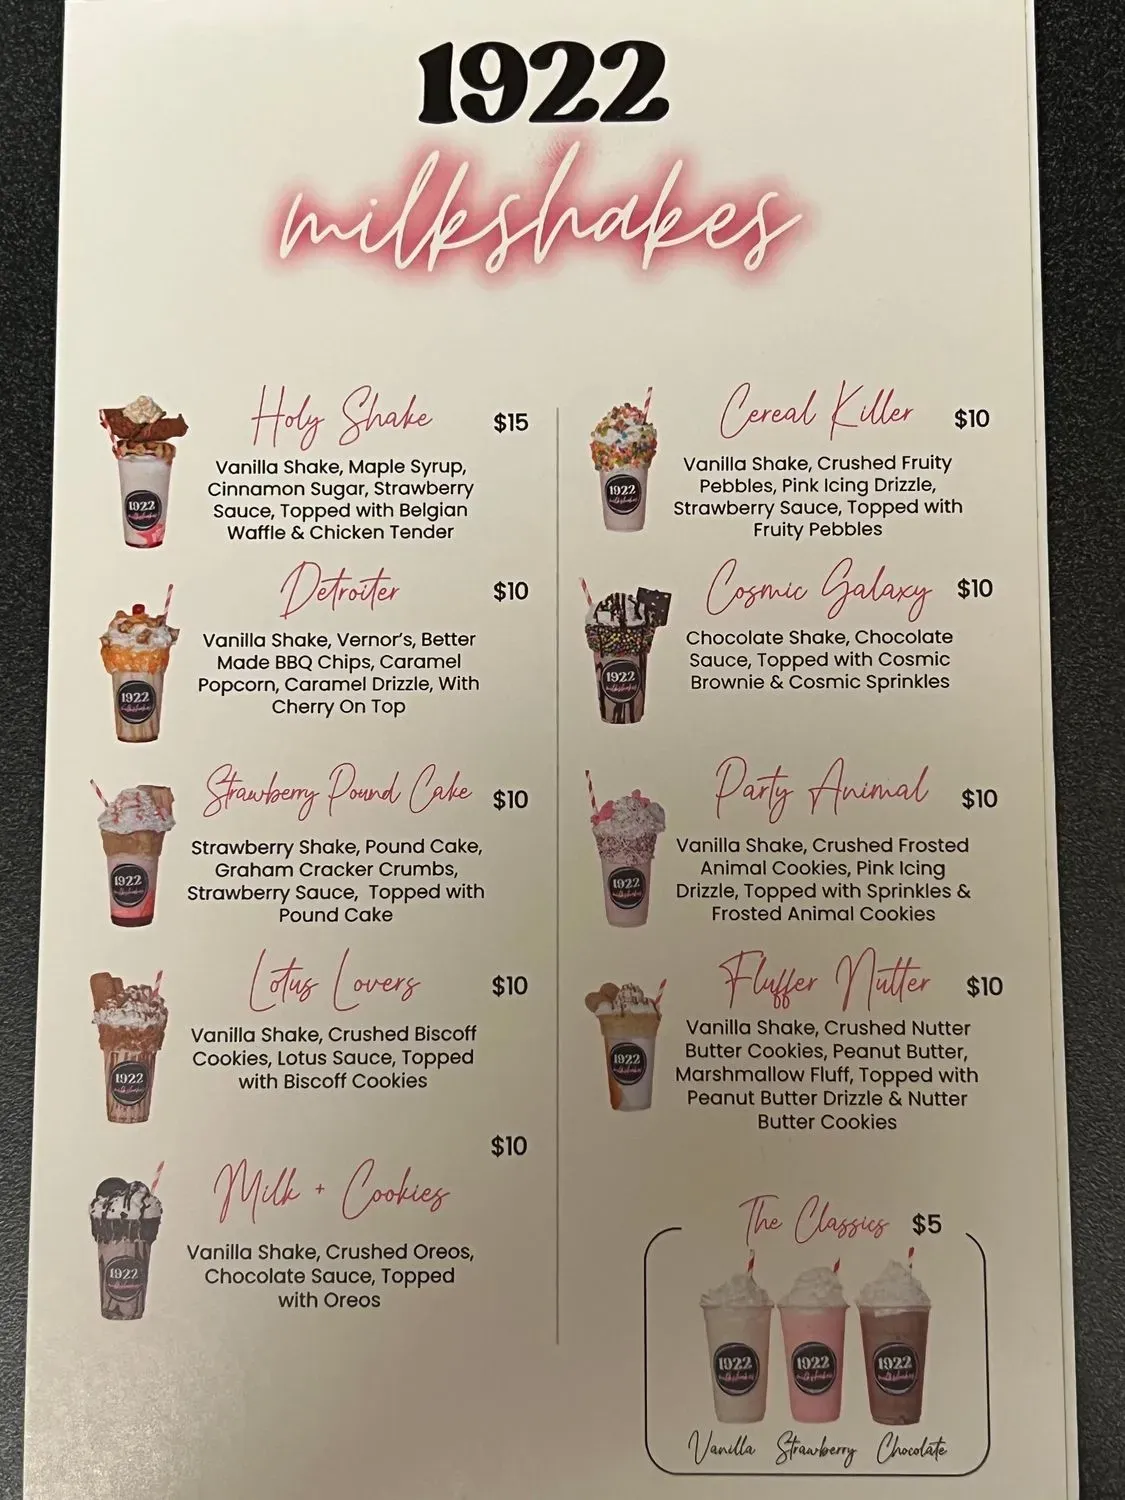 1922
milkshakes
Holy Shake $15
Vanilla Shake, Maple Syrup,
Cinnamon Sugar, Strawberry
Sauce, Topped with Belgian
Waffle & Chicken Tender
Detroiter $10
Vanilla Shake, Vernor's, Better
Made BBQ Chips, Caramel
Popcorn, Caramel Drizzle, With
Cherry On Top
Strawberry Pound Cake $10
Strawberry Shake, Pound Cake,
Graham Cracker Crumbs,
Strawberry Sauce, Topped with
Pound Cake
Lotus Lovers $10
Vanilla Shake, Crushed Biscoff
Cookies, Lotus Sauce, Topped
with Biscoff Cookies
$10
Milk + Cookies
Vanilla Shake, Crushed Oreos,
Chocolate Sauce, Topped
with Oreos
Cereal Killer $10
Vanilla Shake, Crushed Fruity
Pebbles, Pink Icing Drizzle,
Strawberry Sauce, Topped with
Fruity Pebbles
Cosmic Galaxy $10
Chocolate Shake, Chocolate
Sauce, Topped with Cosmic
Brownie & Cosmic Sprinkles
Party Animal $10
Vanilla Shake, Crushed Frosted
Animal Cookies, Pink Icing
Drizzle, Topped with Sprinkles &
Frosted Animal Cookies
Fluffer Nutter $10
Vanilla Shake, Crushed Nutter
Butter Cookies, Peanut Butter,
Marshmallow Fluff, Topped with
Peanut Butter Drizzle & Nutter
Butter Cookies
The Classics $5
1922 1922 1922
milkshakes milkshakes milkshakes
Vanilla Strawberry Chocolate
1922
milkshakes
1922
milkshakes
1922
milkshakes
1922
milkshakes
1922
milkshakes
1922
milkshakes
1922
milkshakes
1922
milkshakes
1922
milkshakes